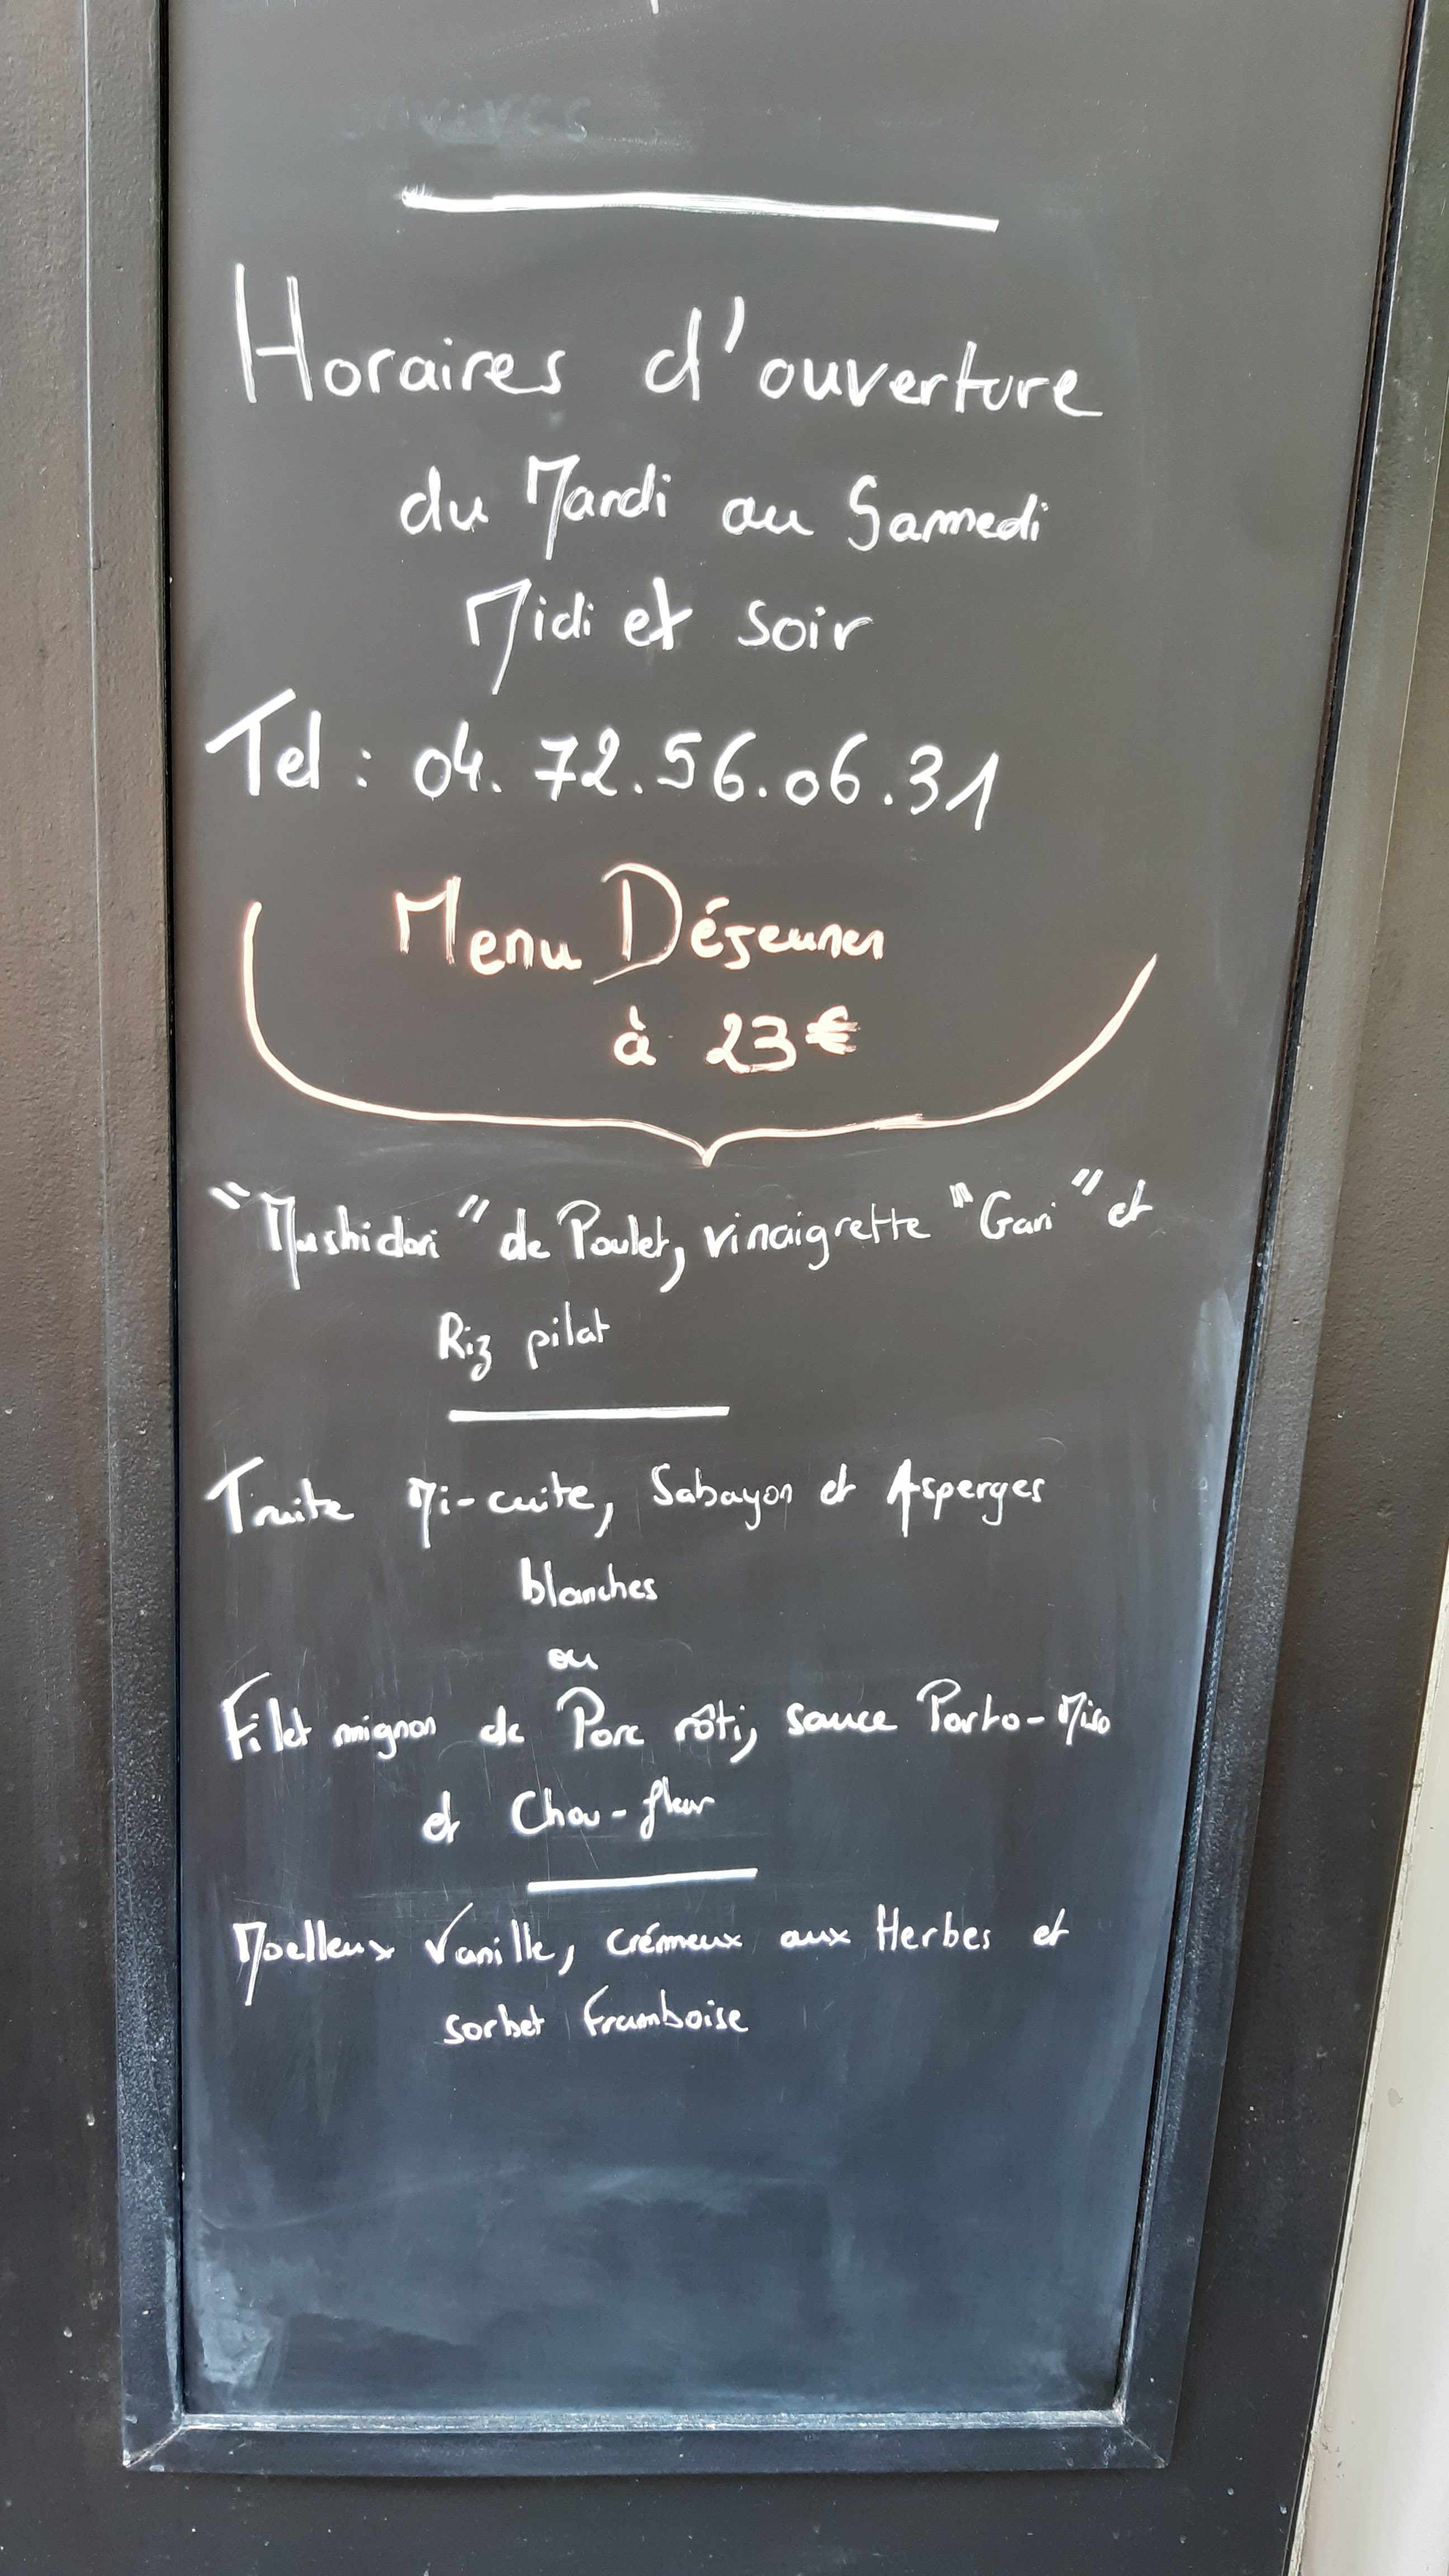 Horaires d'ouverture
du Mardi au Samedi
Midi et soir
Tel : 04.72.56.06.31
Menu Déjeuner
à 23€
"Mushidori" de Poulet, vinaigrette "Gari" et
Riz pilat
Truite Mi-cuite, Sabayon et Asperges
blanches
ou
Filet mignon de Porc rôti, sauce Porto-Miso
et Chou-fleur
Moelleux Vanille, crémeux aux Herbes et
sorbet Framboise